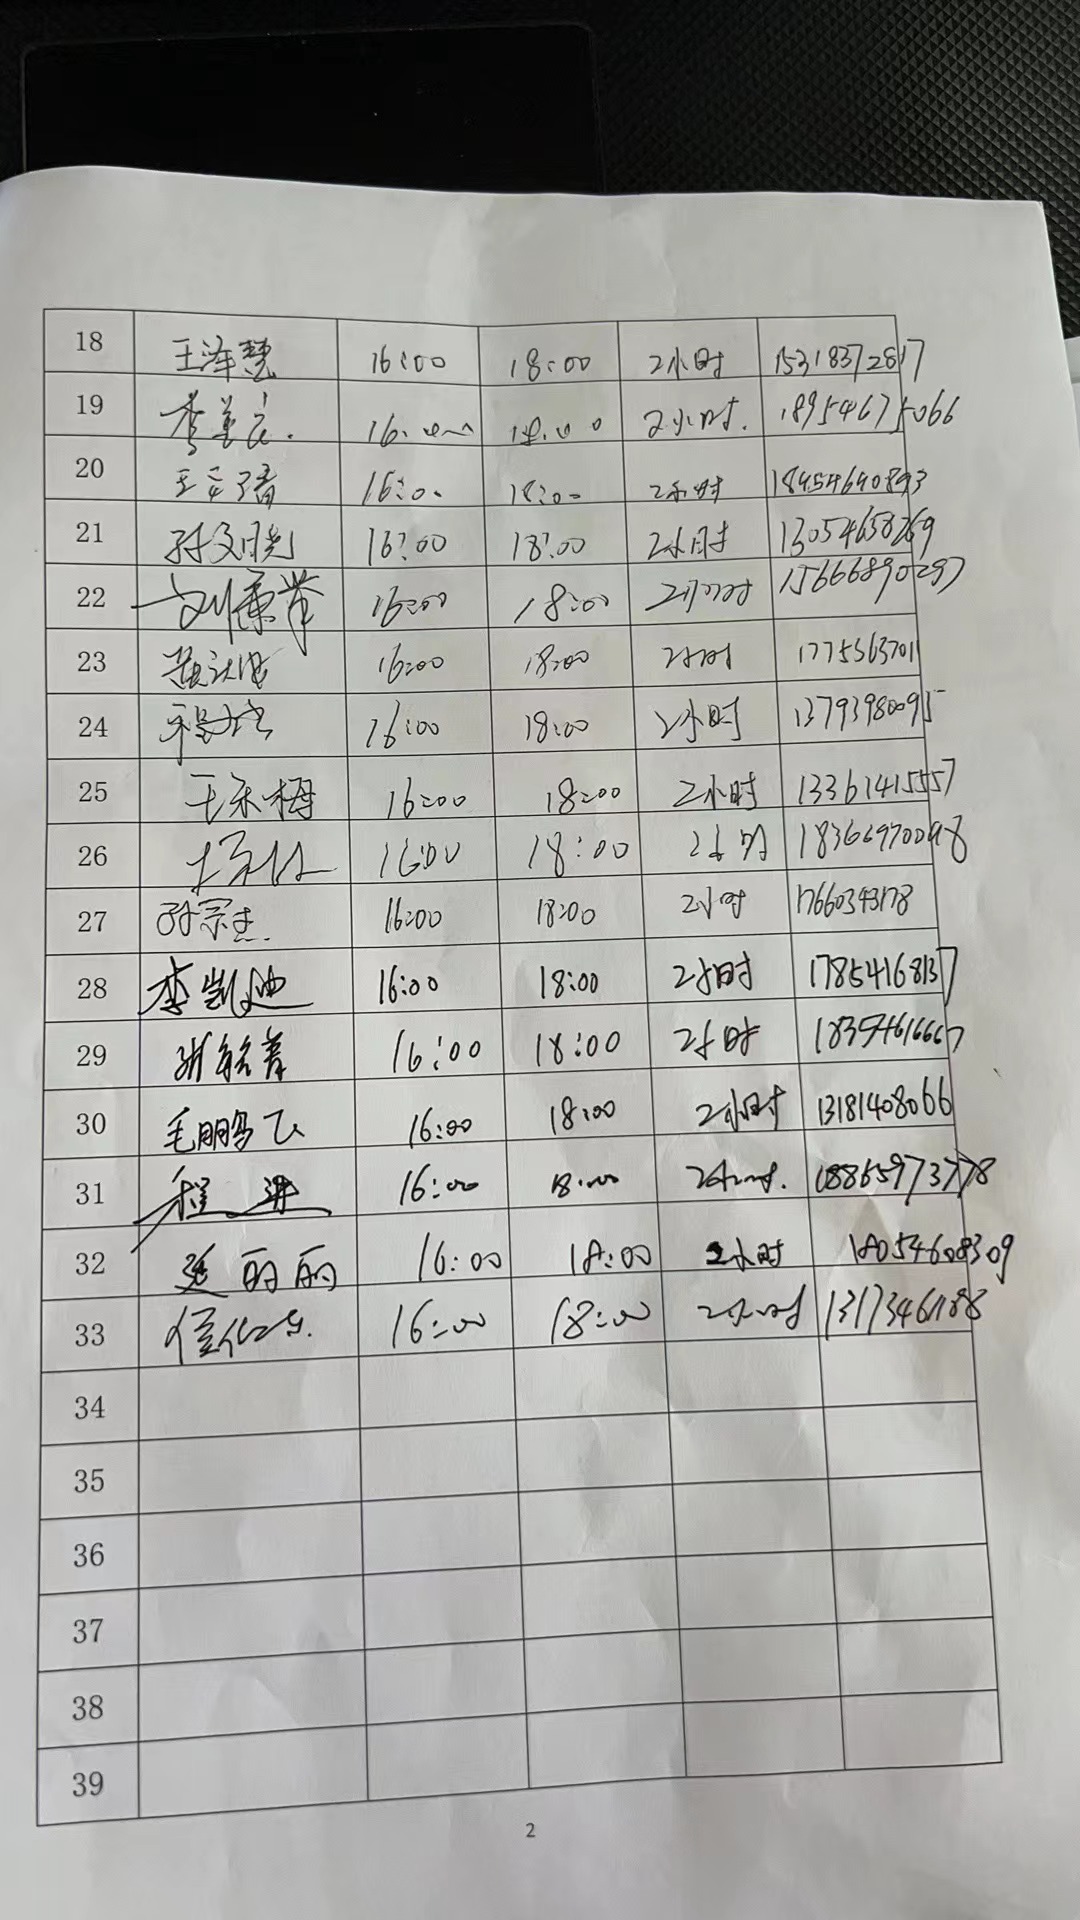 18 王泽慧 16:00 18:00 2小时 15318372817
19 李 16:00 18:00 2小时. 18954675066
20 王 16:00 18:00 2小时 18454640893
21 孙文晓 16:00 18:00 2小时 13054658269
22 刘康 16:00 18:00 2小时 15666890297
23 16:00 18:00 2小时 1775363701
24 程 16:00 18:00 2小时 13793980095
25 王禾梅 16:00 18:00 2小时 13361415557
26 16:00 18:00 2小时 18366970098
27 孙宗杰 16:00 18:00 2小时 17660343178
28 李凯迪 16:00 18:00 2小时 17854168137
29 16:00 18:00 2小时 18354616667
30 毛鹏飞 16:00 18:00 2小时 13181408066
31 程进 16:00 18:00 2小时. 18865973778
32 延丽丽 16:00 18:00 2小时 18054608309
33 16:00 18:00 2小时 13173461188
34
35
36
37
38
39
2